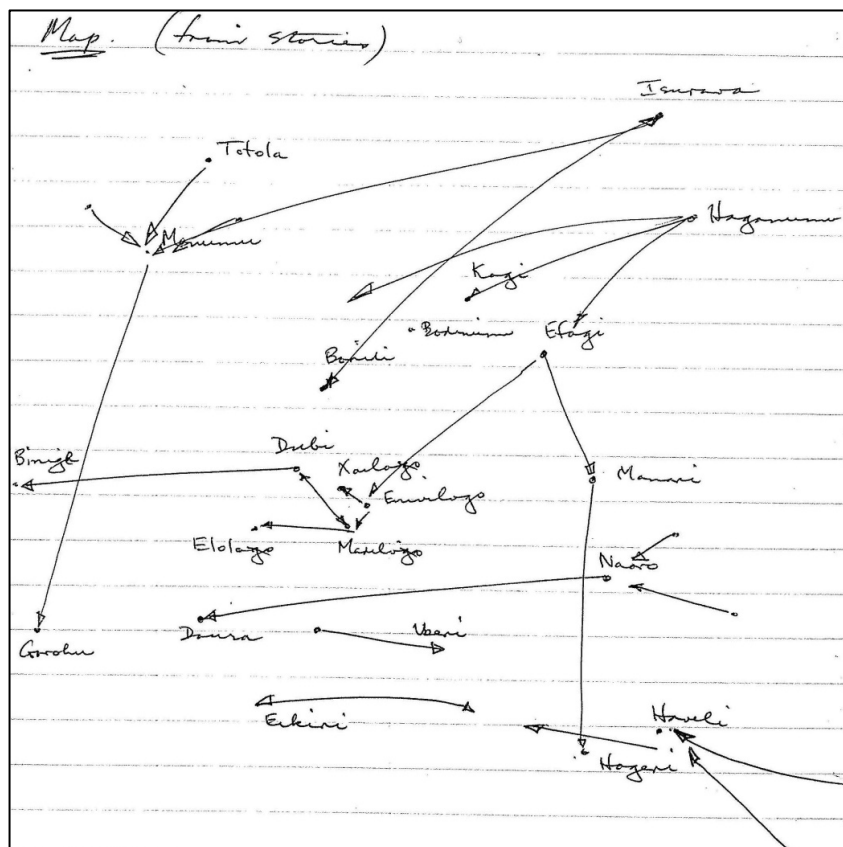 Map. (from stories)
Isurava
Totola
Manumu
Haganumu
Kagi
Bodinumu
Efagi
Boili
Dubi
Binigi
Xailogo
Enivilogo
Manari
Elologo
Marilogo
Naoro
Daura
Uberi
Gorohu
Eikiri
Haveli
Hageri